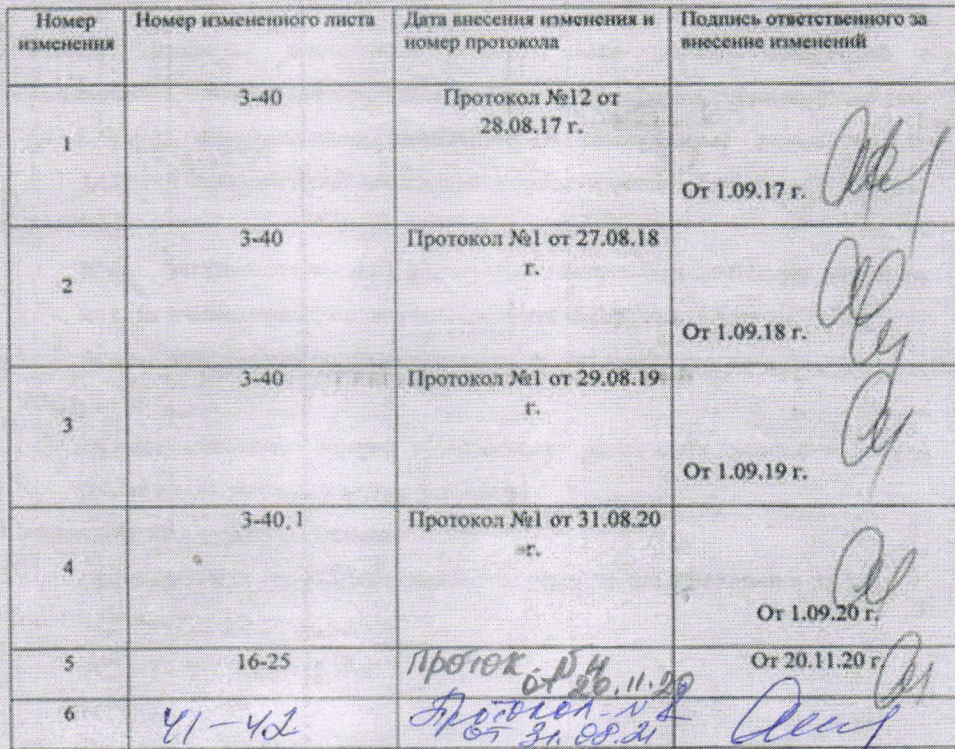 Номер изменения
Номер измененного листа
Дата внесения изменения и номер протокола
Подпись ответственного за внесение изменений
1
3-40
Протокол №12 от
28.08.17 г.
От 1.09.17 г.
2
3-40
Протокол №1 от 27.08.18
г.
От 1.09.18 г.
3
3-40
Протокол №1 от 29.08.19
г.
От 1.09.19 г.
4
3-40,1
Протокол №1 от 31.08.20
г.
От 1.09.20 г.
5
16-25
Проток №4
от 20.11.20
От 20.11.20 г.
6
41-42
Протокол-№
от 31.08.21